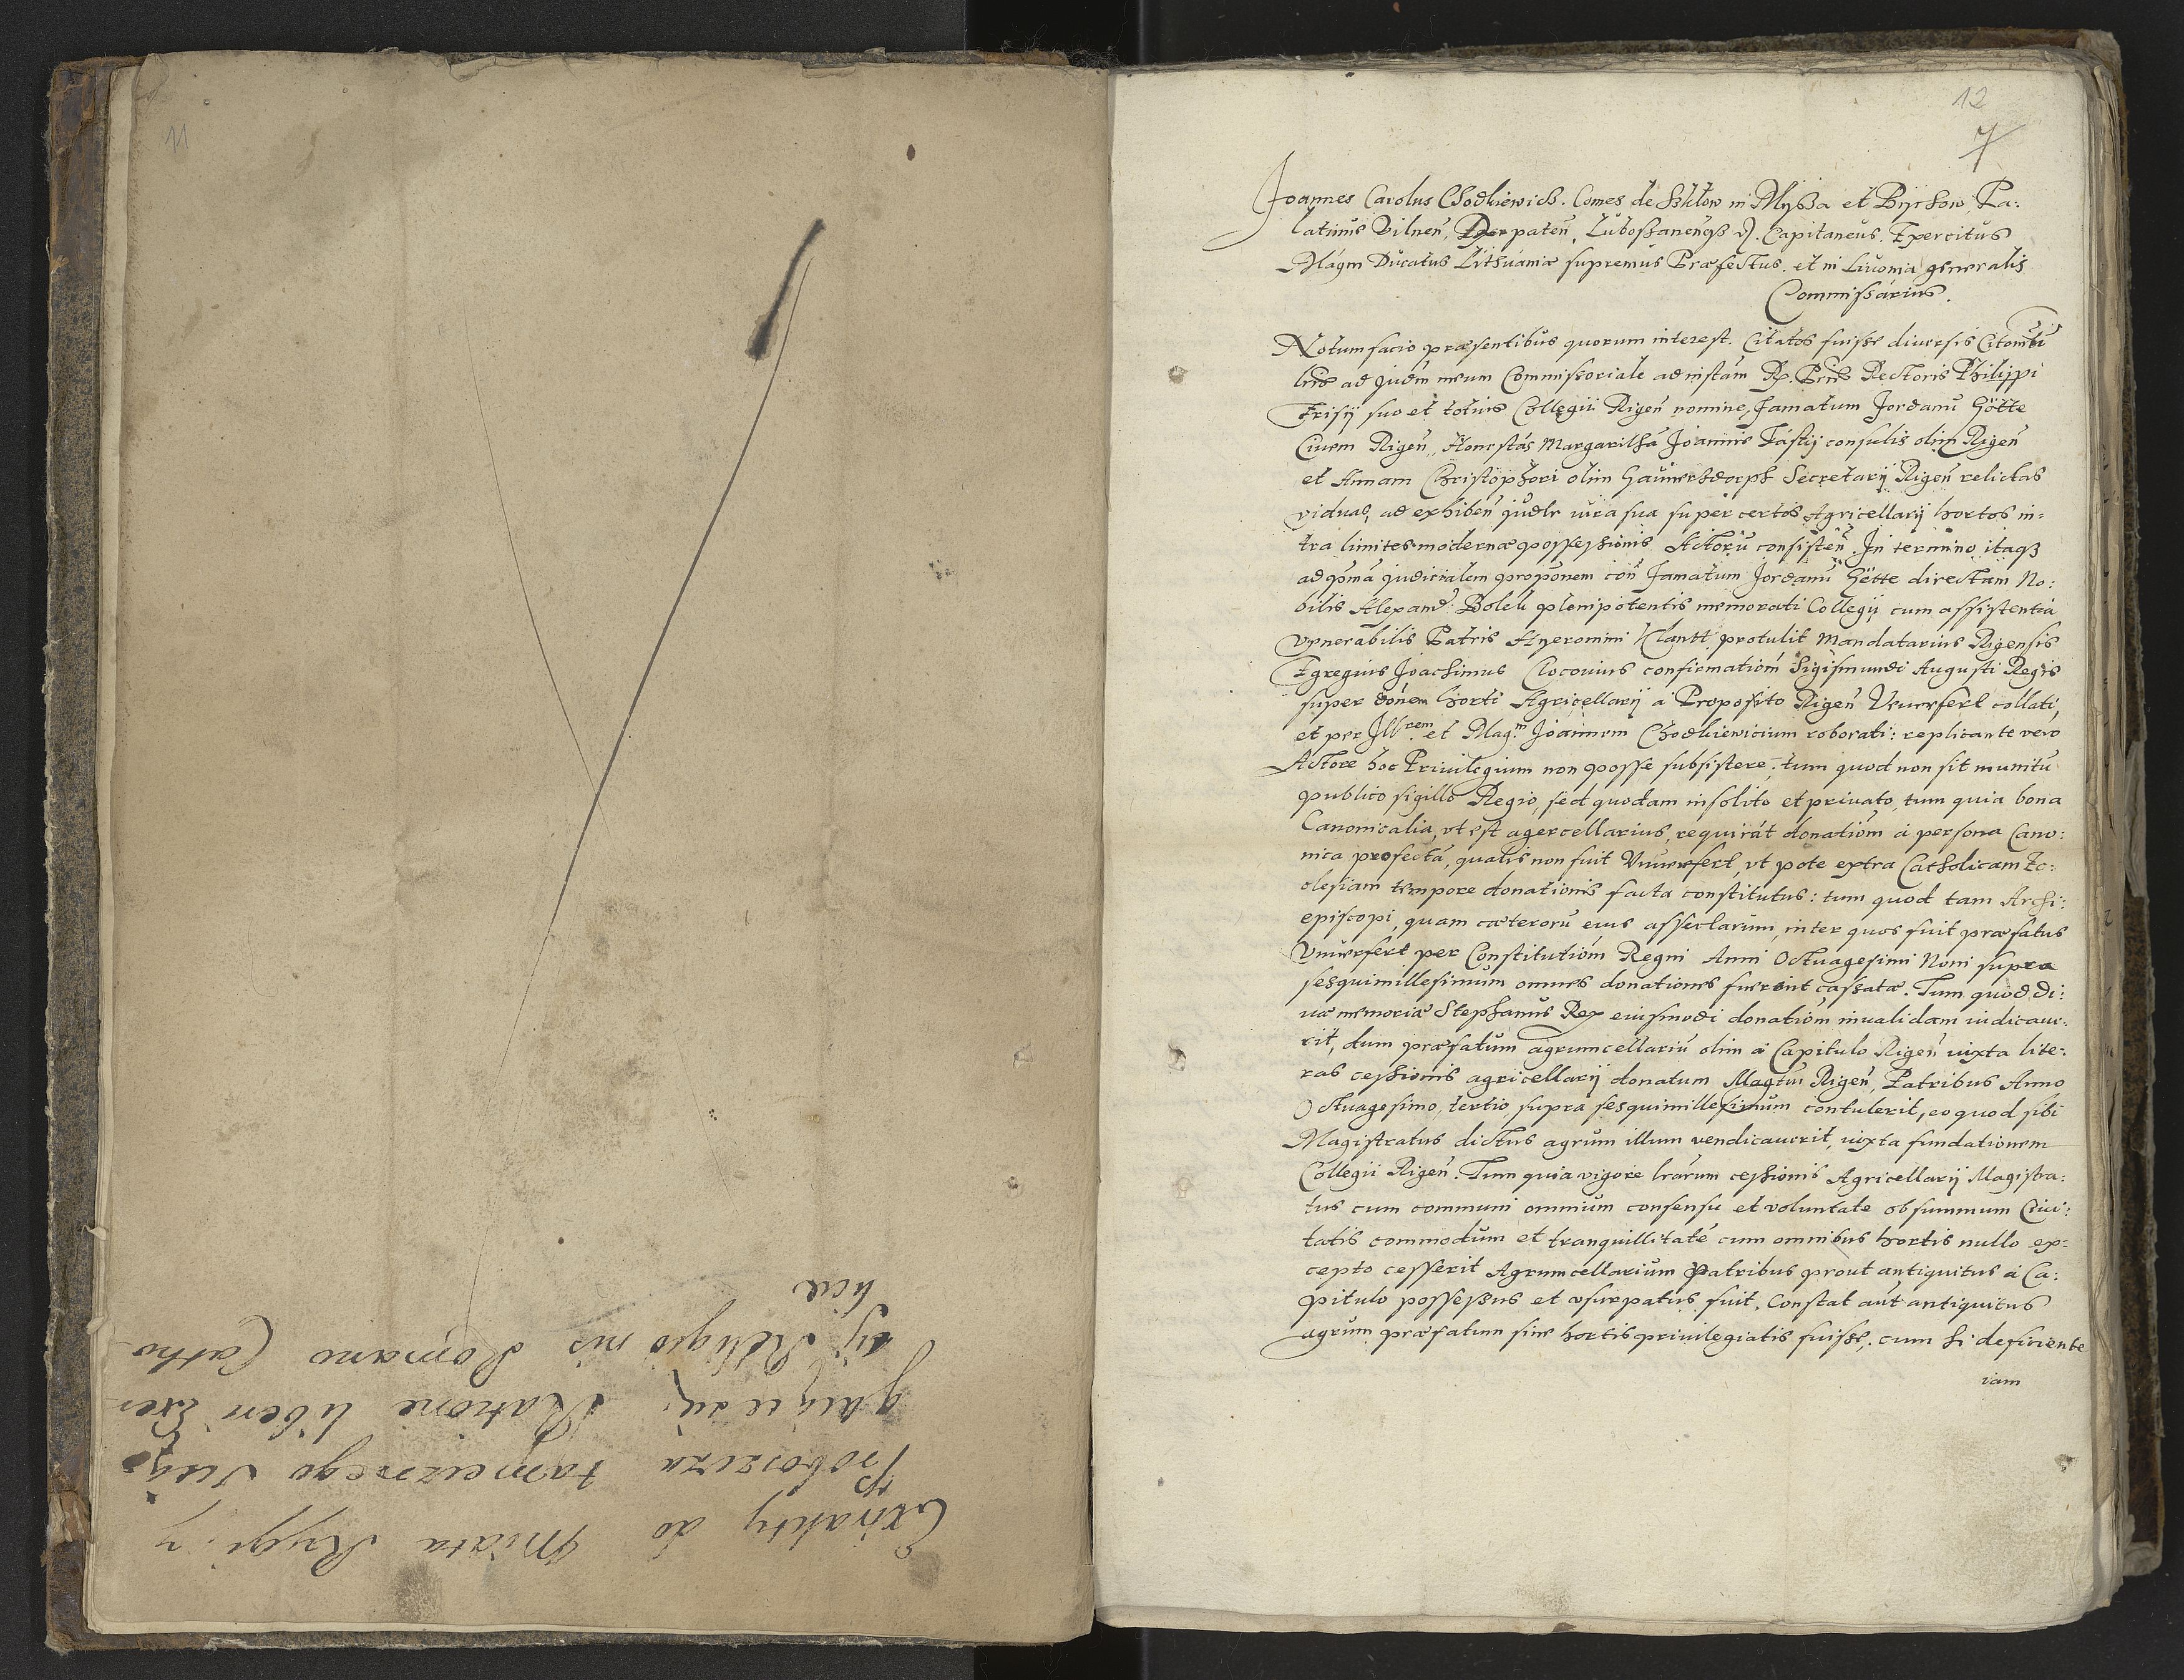 11
Extrakty do Miasta Rygi. y
Proboszcza tameiznego Służą
ce Ratione liberi Exer
cij Religionis Romano Catho
licæ
12
7
Joannes Carolus Chodkiewich. Comes de Schklow in Myssa et Bychow, Pa:
latinus Vilnen, Derpaten, Lubossanensqz Capitaneus. Exercitus
Magni Ducatus Lithuaniæ supremus Præfectus. et in Livonia generalis
Commissarius.
Notum facio præsentibus quorum interest. Citatos fuisse diuersis Citom
lris ad Judm meum Commissoriale ad instam R. Pris Rectoris Philippi
Frisij suo et totius Collegii Rigen nomine, famatum Jordanu Götte
Ciuem Rigen, Honestas Margaritha Joannis Fastij consulis olim Rigen
et Annam Christophori olim Hauwersdorph Secretarij Rigen relictas
viduas, ad exhiben judlr iura sua super certos Agricellarij hortos in=
tra limites modernæ possessionis Actoru consisten. In termino itaqz
ad pma judicialem proponem con famatum Jordanu Götte directam No:
bilis Alexand: Bolek plenipotentis memorati Collegij cum assistentia
venerabilis Patris Hyeronimi Klantt protulit Mandatarius Rigensis
Egregius Joachimus Clocouius confirmatiom Sigismundi Augusti Regis
super donem horti Agricellarij à Proposito Rigen collati,
et per Illrem et Magm Joannem Chodkiewicium roborati: replicante vero
Actore hoc Priuilegium non posse subsistere, tum quod non sit munitu
publico sigillo Regio, sed quodam insolito et priuato, tum quia bona
Canonicalia, vt est agercellarius, requirat donatiom à persona Cano:
nica profecta, qualis non fuit, vt pote extra Catholicam Ec:
clesiam tempore donationis facta constitutus: tum quod tam Archi:
episcopi, quam cæteroru eius assectarum, inter quos fuit præfatus
per Constitutiom Regni Anni Octuagesimi Noni supra
sesquimillesimum omnes donationes fuerint cassatæ. Tum quod di:
uæ memoriæ Stephanus Rex eiusmodi donatiom inualidam iudicaue:
rit, dum præfatum agrumcellariu olim à Capitulo Rigen iuxta lite:
ras cessionis agricellarij donatum Magtui Rigen, Patribus Anno
Octuagesimo tertio supra sesquimillesimum contulerit, eo quod sibi
Magistratus dictus agrum illum vendicauerit, iuxta fundationem
Collegii Rigen. Tum quia vigore lrarum cessionis Agricellarij Magistra:
tus cum communi omnium consensu et voluntate ob summum Ciui:
tatis commodum et tranquillitate cum omnibus hortis nullo ex=
cepto cesserit Agrumcellarium Patribus prout antiquitus à Ca:
pitulo possessus et vsurpatus fuit. Constat aut antiquitus
agrum præfatum sine hortis priuilegiatis fuisse, cum hi deficiente
iam